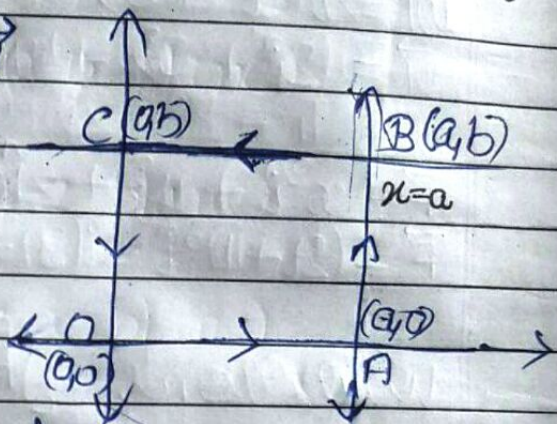 C (0,b)
B (a,b)
x=a
O
(a,0)
(0,0)
A